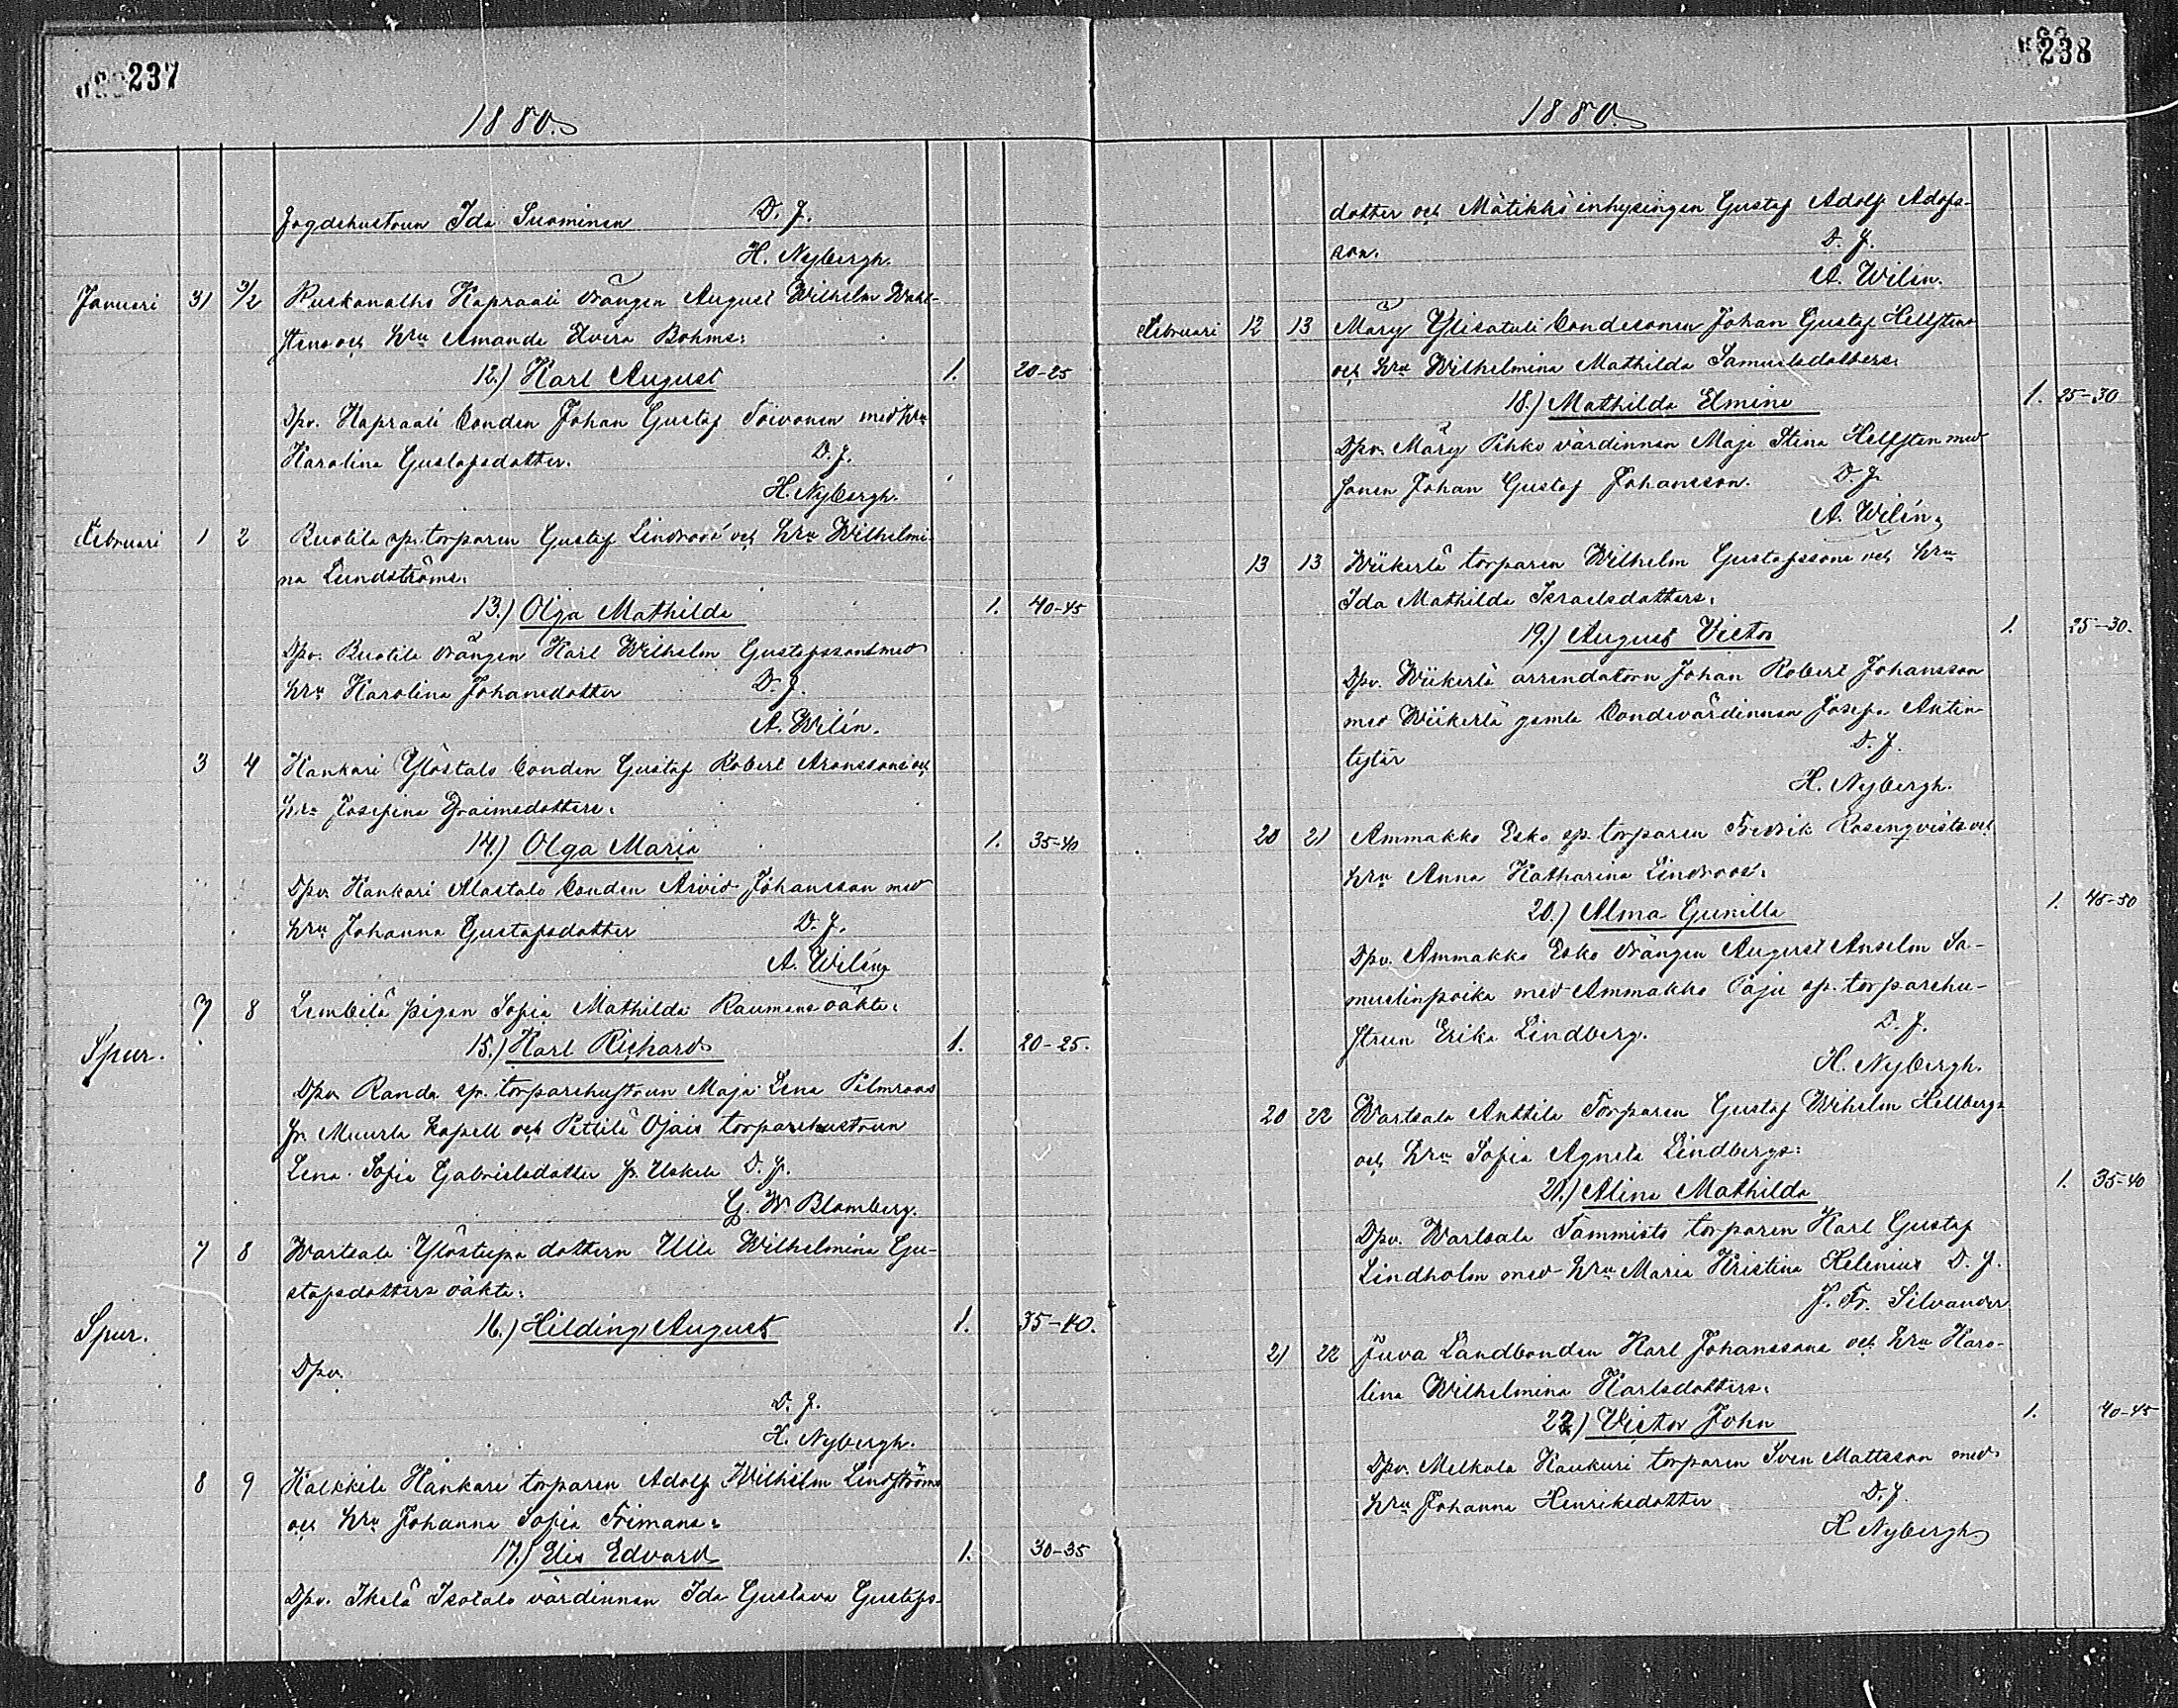 237
1880.
Fogdehustrun Ida Suominen D. J.
H. Nybergh.
Januari 31 3/2 Ruskanalho Kapraali drängen August Wilhelm Wahl-
stens och hru Amanda Elvira Bohms:
12.) Karl August 1. 20-25
Dpv. Kapraali bonden Johan Gustaf Toivonen med hru
Karolina Gustafsdotter. D. J.
H. Nybergh.
Februari 1 2 Ruotila sp. torparen Gustaf Lindroos' och hru Wilhelmi-
na Lundströms:
13.) Olga Mathilda 1. 40-45
Dpv. Ruotila drängen Karl Wilhelm Gustafsson med
hru Karolina Johansdotter D. J.
A. Wilén.
3 4 Hankari Ylöstalo bonden Gustaf Robert Aronssons och
hru Josefina Efraimsdotters:
14.) Olga Maria 1. 35-40
Dpv. Hankari Alastalo bonden Arvid Johansson med
hru Johanna Gustafsdotter D. J.
A. Wilén.
7 8 Lembilä pigan Sofia Mathilda Raumans oäkta:
Spur. 15.) Karl Richard 1. 20-25.
Dpv. Randa sp. torparehustrun Maja Lena Palmroos
fr. Muurla kapell och Pettilä Ojais torparehustrun
Lena Sofia Gabrielsdotter fr. Uskela D. J.
G. W. Blomberg.
7 8 Wartsala Ylöstupa dottern Ulla Wilhelmina Gu-
stafsdotters oäkta:
Spur. 16.) Hilding August 1. 35-40.
Dpv.
D. J.
H. Nybergh.
8 9 Kalkkila Hankare torparen Adolf Wilhelm Lindströms
och hru Johanna Sofia Frimans:
17.) Elis Edvard 1. 30-35
Dpv. Ikelä Isotalo värdinnan Ida Gustava Gustafs-
238
1880.
dotter och Mätikkö inhysingen Gustaf Adolf Adofs-
son. D. J.
A. Wilén.
Februari 12 13 Märy Ylisatuli bondesonen Johan Gustaf Hellstens
och hru Wilhelmina Mathilda Samuelsdotters:
18.) Mathilda Elmina 1. 25-30
Dpv. Märy Pihko värdinnan Maja Stina Hellsten med
sonen Johan Gustaf Johansson. D. J.
A. Wilén.
13 13 Wiikerlä torparen Wilhelm Gustafssons och hru
Ida Mathilda Israelsdotters:
19.) August Victor 1. 25-30.
Dpv. Wiikerlä arrendatorn Johan Robert Johansson
med Wiikerlä gamla bondevärdinnan Josefa Antin
tytär D. J.
H. Nybergh.
20 21 Ammakko Esko sp. torparen Fredrik Rosenqvists och
hru Anna Katharina Lindroos':
20.) Alma Gunilla 1. 45-50
Dpv. Ammakko Esko drängen August Anselm Sa-
muelinpoika med Ammakko Paju sp. torparehu-
strun Erika Lindberg. D. J.
H. Nybergh.
20 22 Wartsala Anttila Torparen Gustaf Wihelm Hellbergs
och hru Sofia Agneta Lindbergs:
21.) Alina Mathilda 1. 35-40
Dpv. Wartsala Tammisto torparen Karl Gustaf
Lindholm med hru Maria Kristina Helenius D. J.
J. Fr. Silvander
21 22 Juva Landbonden Karl Johanssons och hru Karo-
lina Wilhelmina Karlsdotters:
22.) Victor John 1. 40-45
Dpv. Melkola Haukuri torparen Sven Mattsson med
hru Johanna Henriksdotter D. J.
H Nybergh